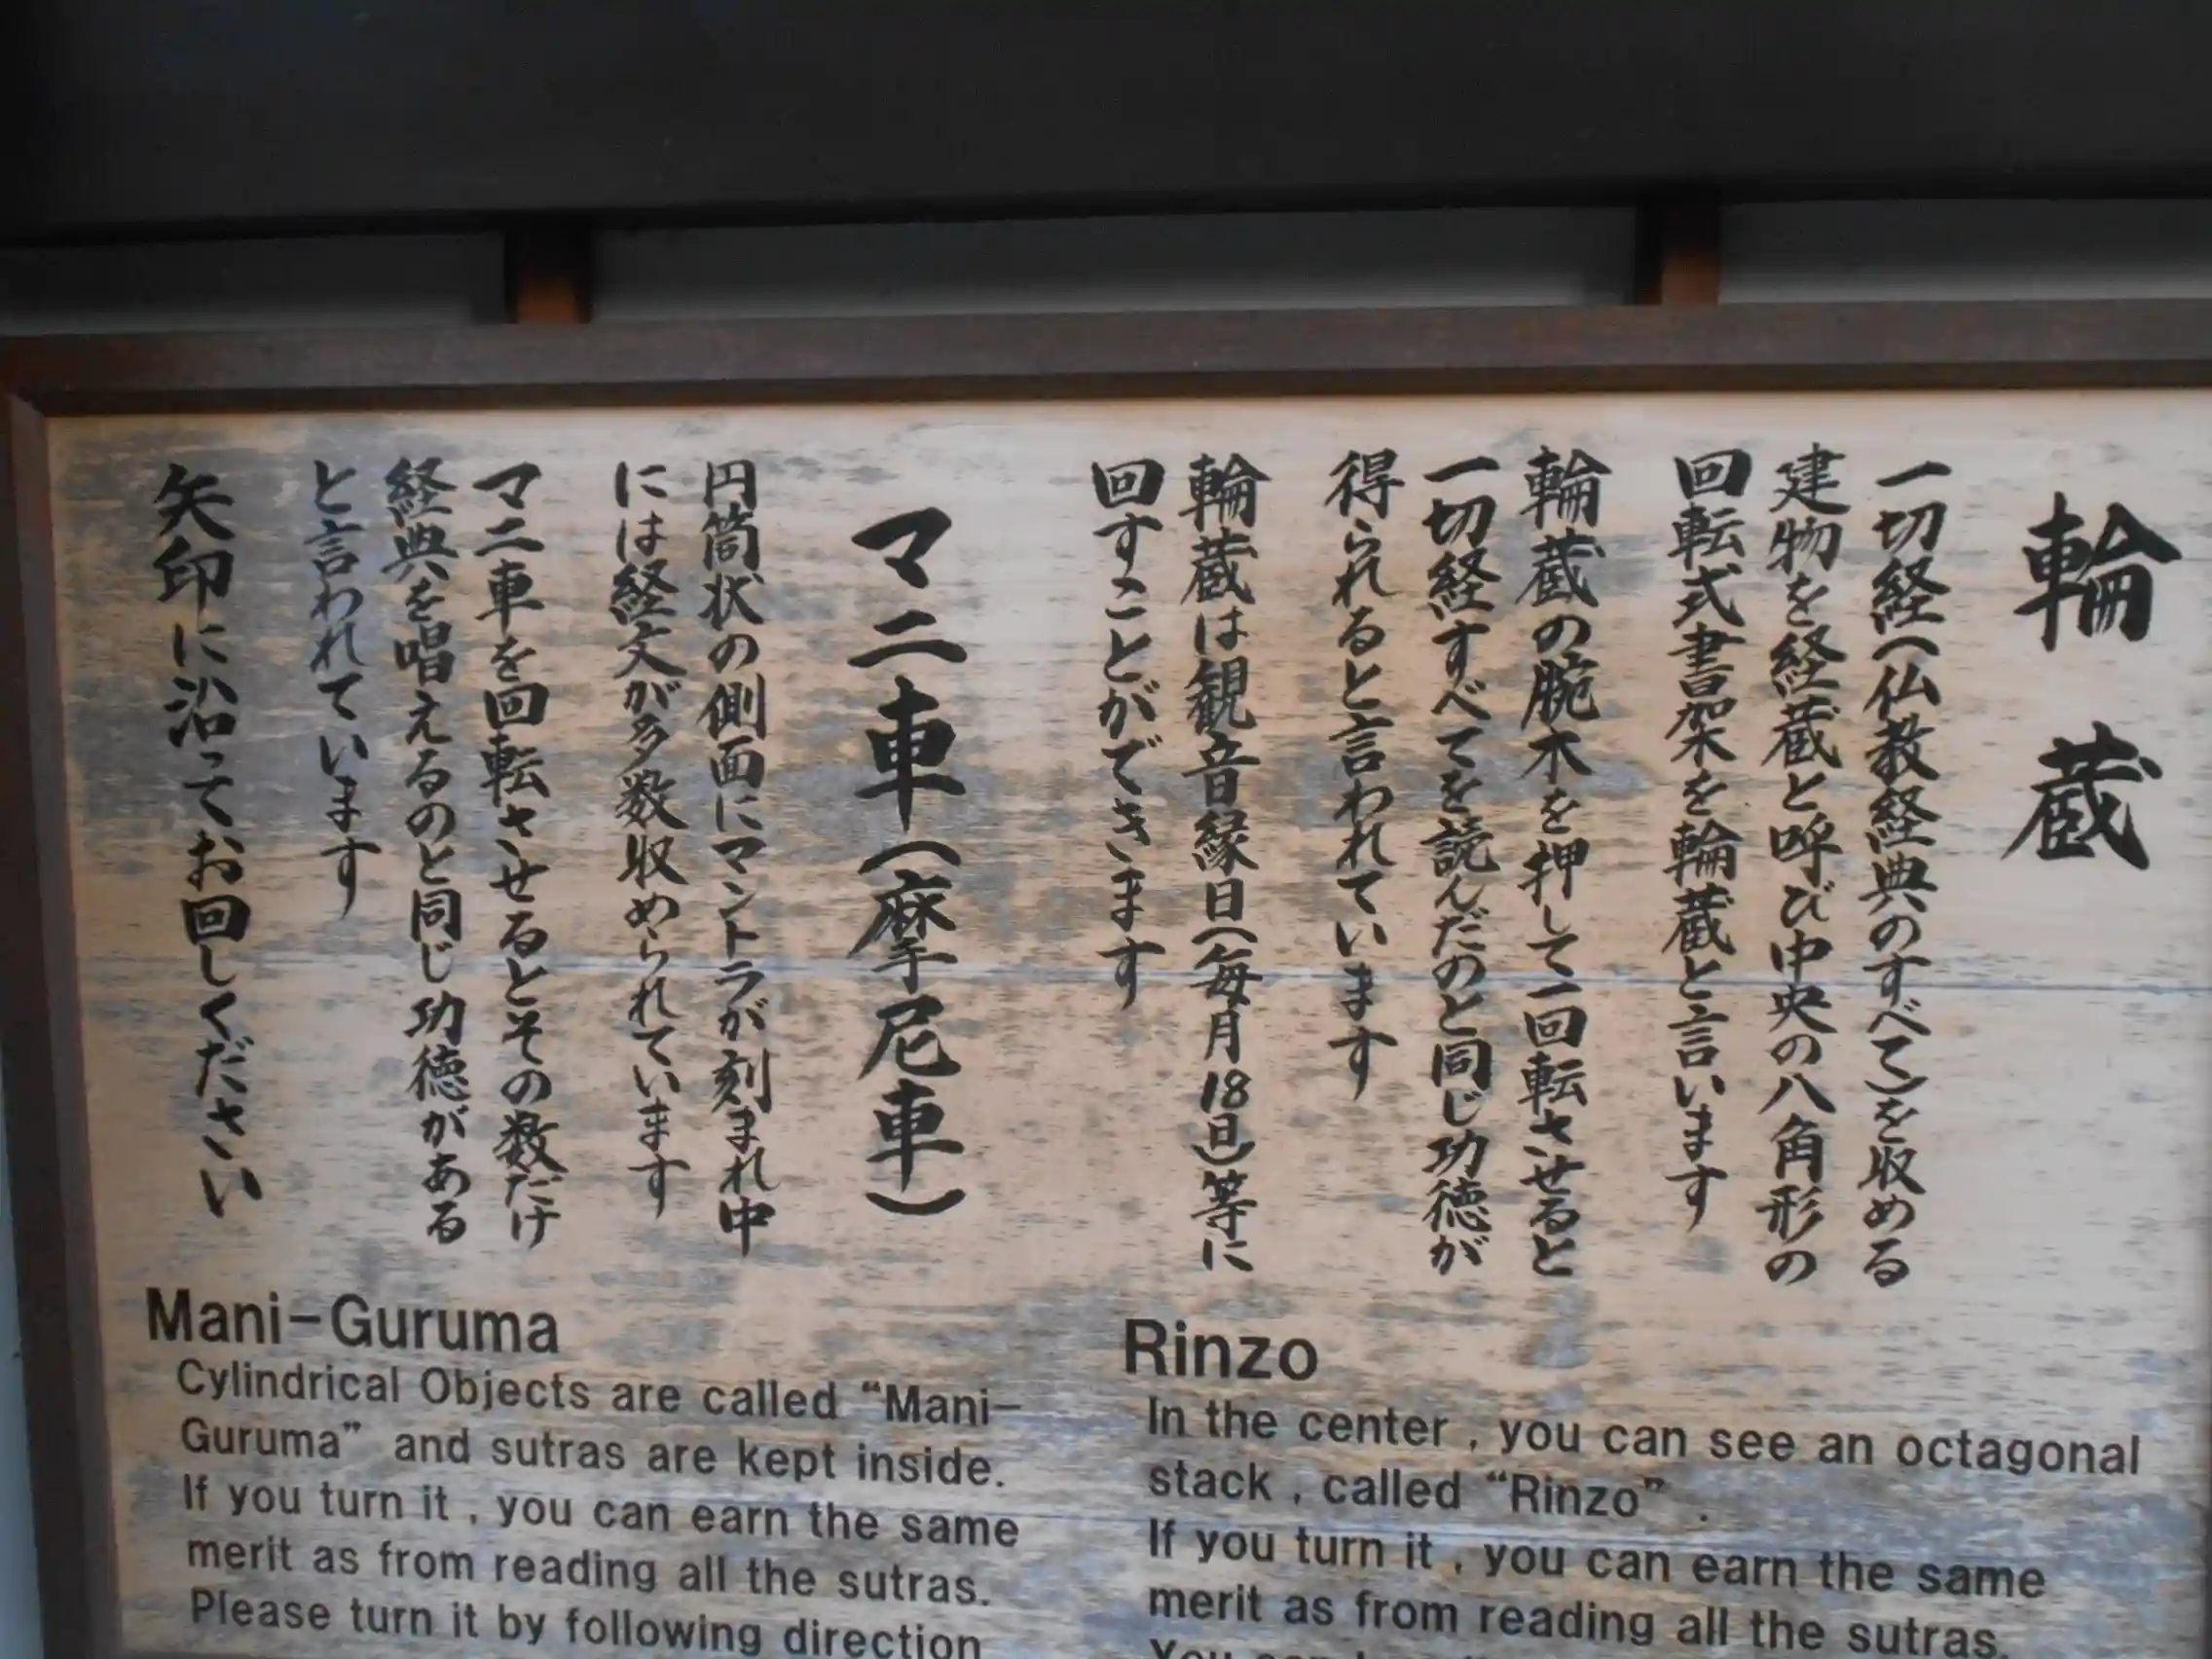 輪蔵
一切経(仏教経典のすべて)を収める
建物を経蔵と呼び中央の八角形の
回転式書架を輪蔵と言います
輪蔵の腕木を押して一回転させると
一切経すべてを読んだのと同じ功徳が
得られると言われています
輪蔵は観音縁日(毎月18日)等に
回すことができます
マニ車(摩尼車)
円筒状の側面にマントラが刻まれ中
には経文が多数収められています
マニ車を回転させるとその数だけ
経典を唱えるのと同じ功徳がある
と言われています
矢印に沿ってお回しください
Mani-Guruma
Cylindrical Objects are called “Mani-
Guruma” and sutras are kept inside.
If you turn it , you can earn the same
merit as from reading all the sutras.
Please turn it by following direction
Rinzo
In the center , you can see an octagonal
stack , called “Rinzo” .
If you turn it , you can earn the same
merit as from reading all the sutras.
You can